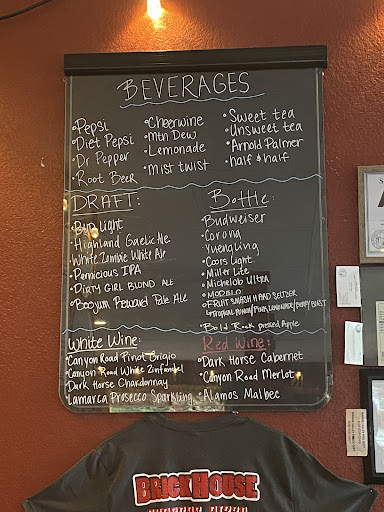 BEVERAGES
•Pepsi
•Diet Pepsi
•Dr Pepper
•Root Beer
•Cheerwine
•Mtn Dew
•Lemonade
•Mist twist
•Sweet tea
•Unsweet tea
•Arnold Palmer
•half & half
DRAFT:
•Bud Light
•Highland Gaelic Ale
•White Zombie White Ale
•Pernicious IPA
•DIRTY GIRL BLOND ALE
Bottle:
•Budweiser
•Corona
•Yuengling
•Coors Light
•Miller Lite
•Michelob Ultra
•MODELO
•FRUIT SMASH HARD SELTZER
•Bold Rock pressed Apple
White Wine:
•Canyon Road Pinot Grigio
•Canyon Road White Zinfandel
•Dark Horse Chardonnay
•Lamarca Prosecco Sparkling
Red Wine:
•Dark Horse Cabernet
•Canyon Road Merlot
•Alamos Malbec
BRICKHOUSE